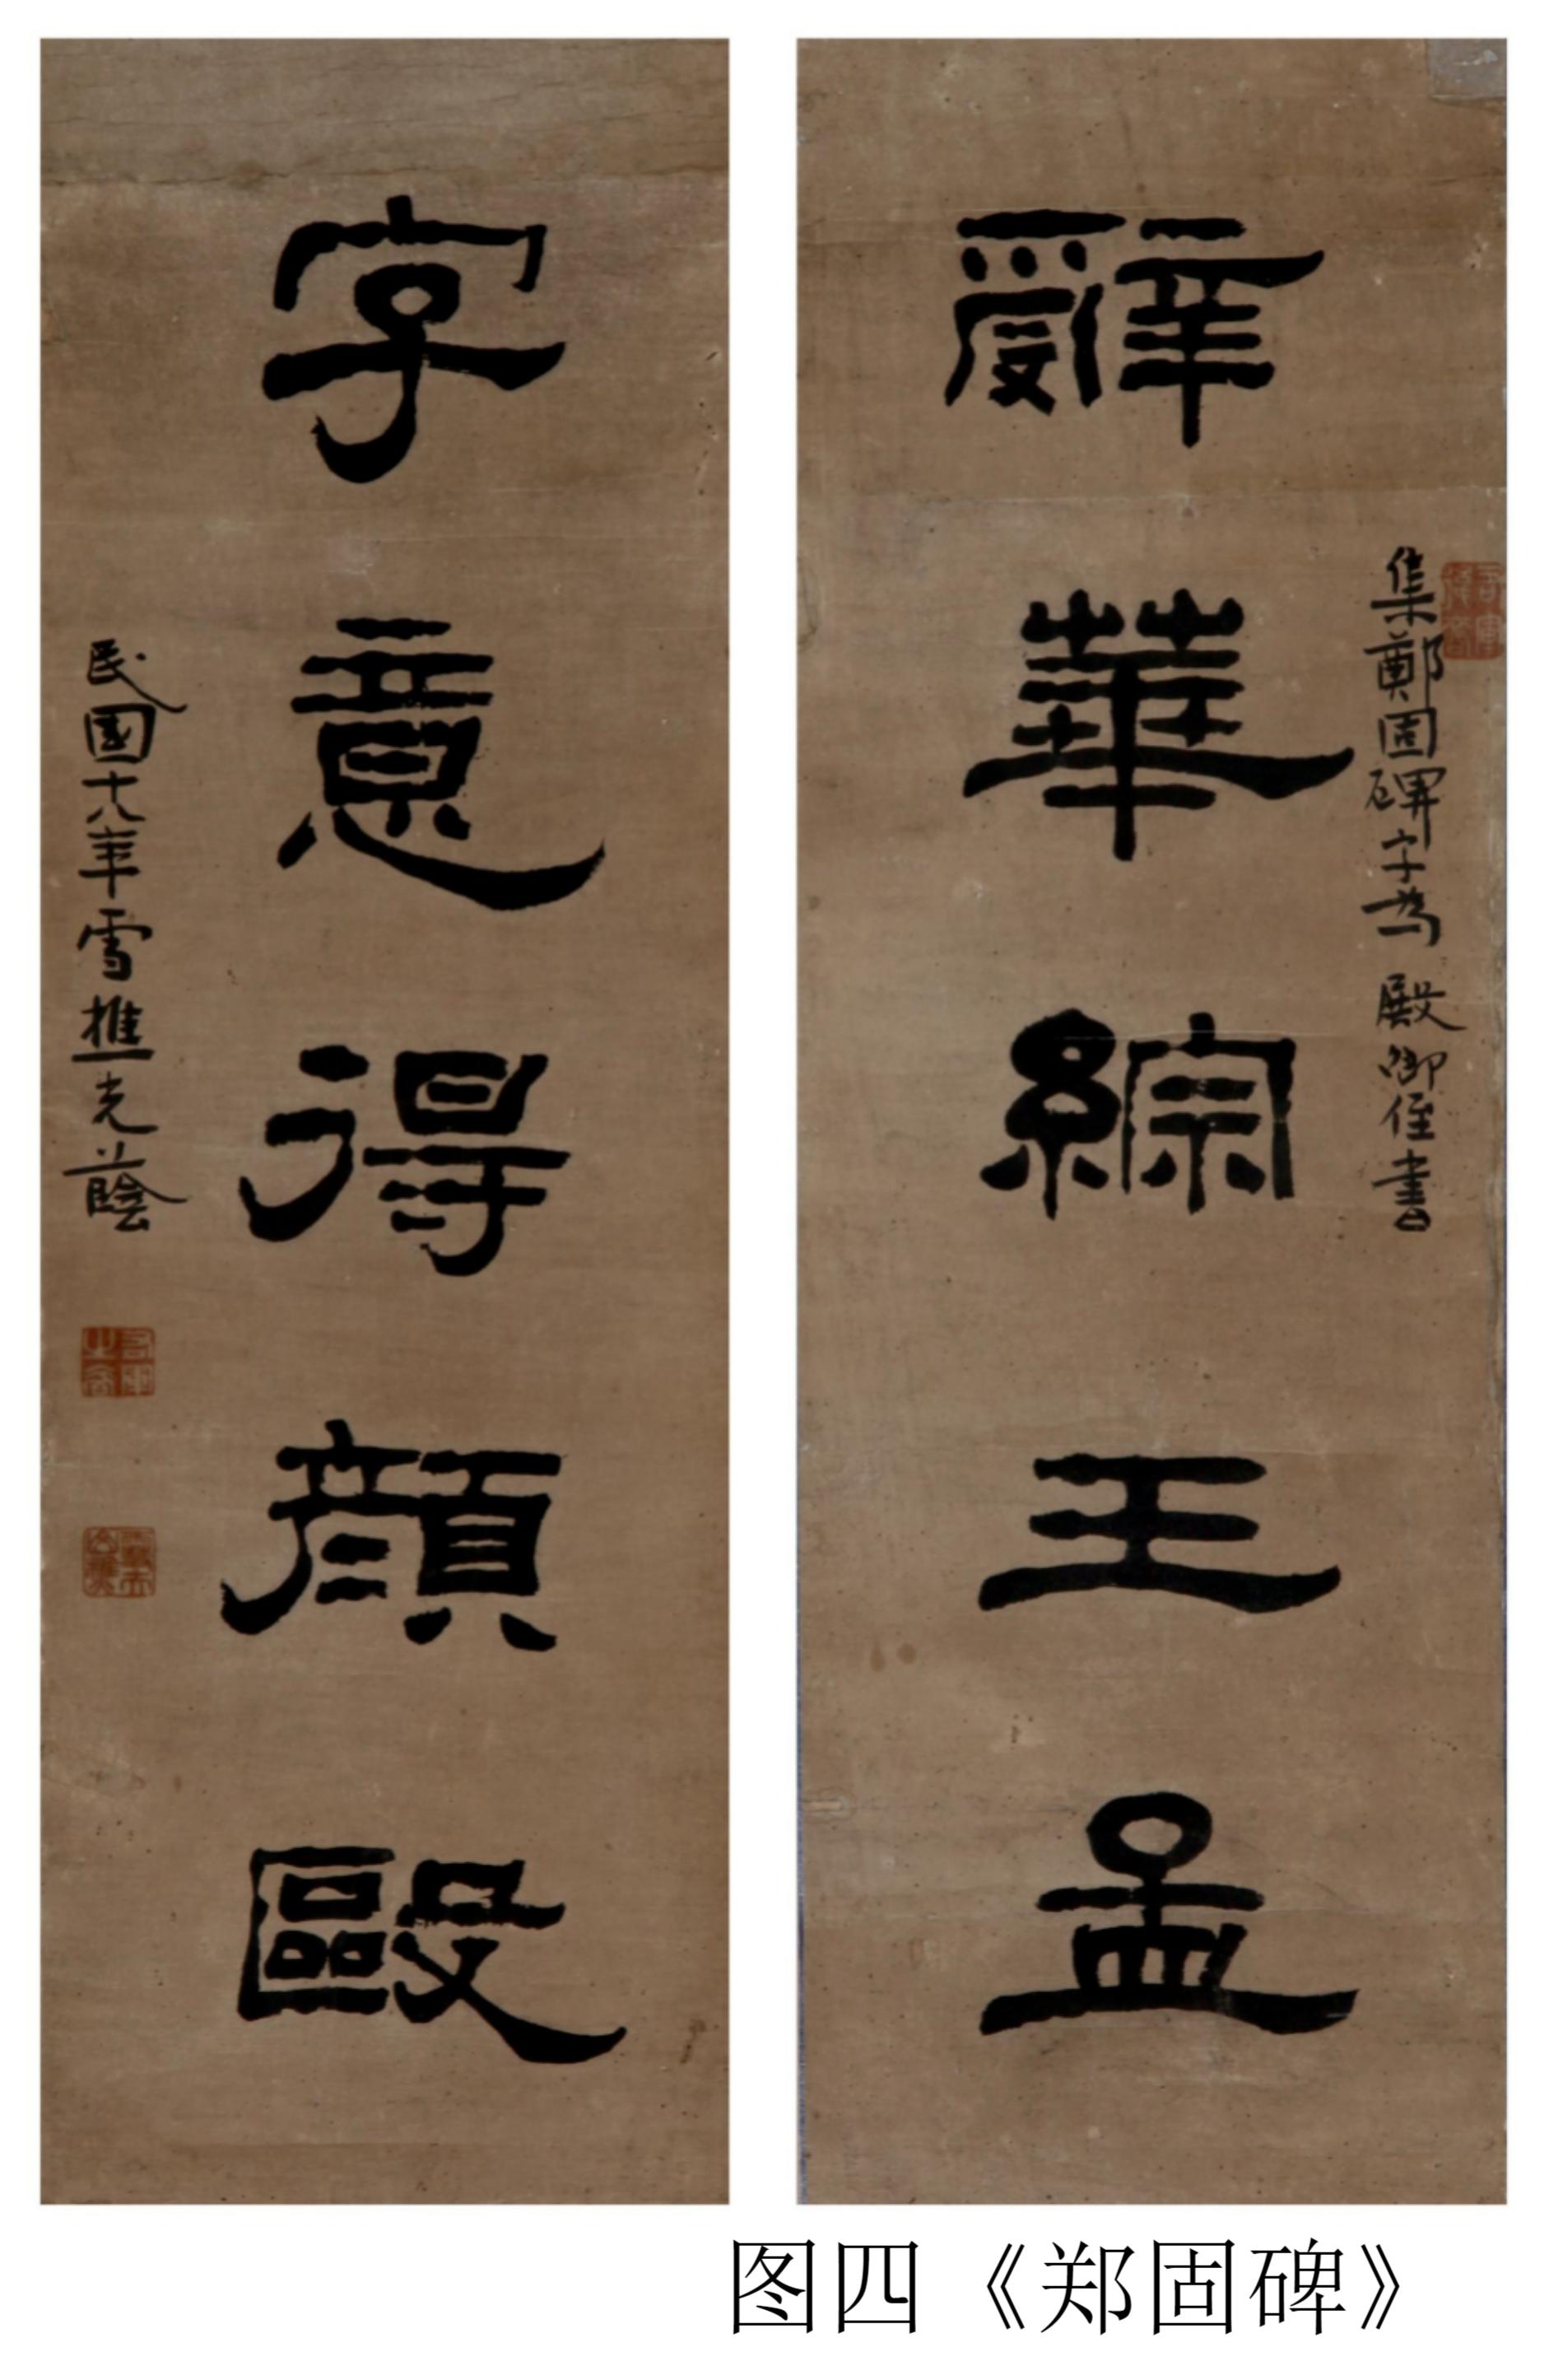 集鄭固碑字為 殿卿侄書
辭華綜王孟
字意得顏毆
民國十八年雪樵光蔭
图四《郑固碑》